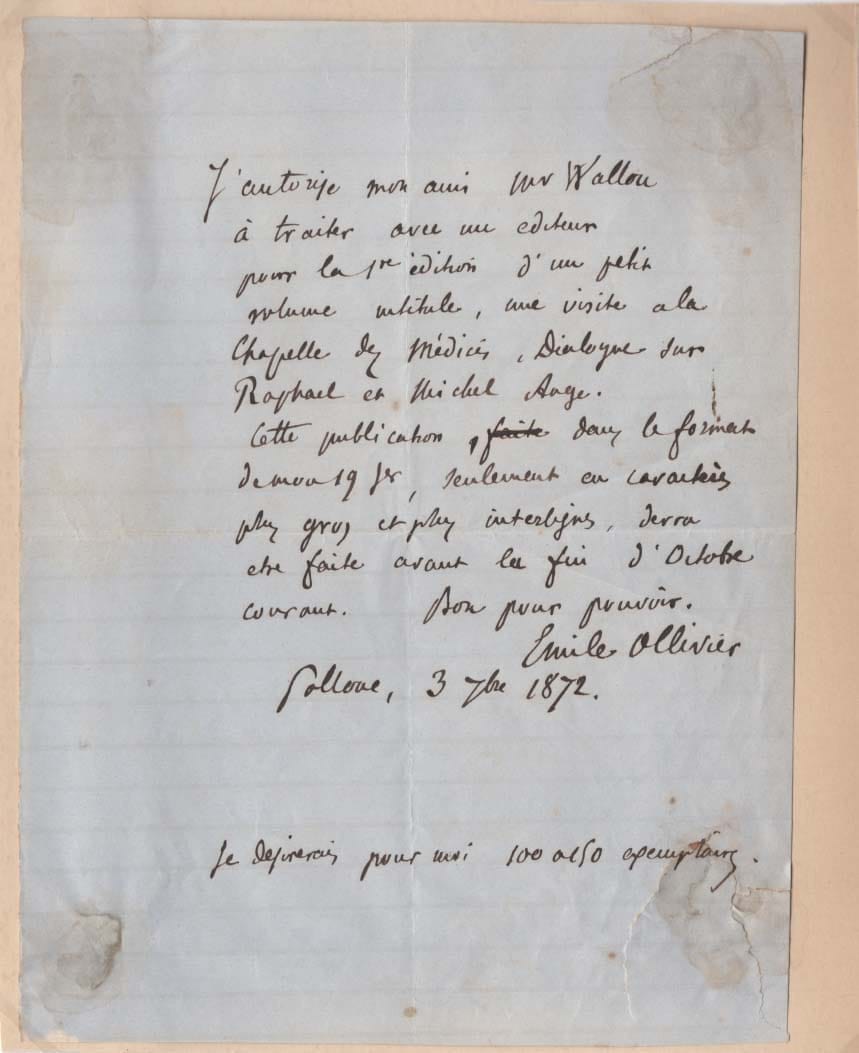 J'autorise mon ami Mr Wallon
à traiter avec un editeur
pour la 1re édition d'un petit
volume intitule, une visite a la
Chapelle des Médicis, Dialogue sur
Raphael et Michel Ange.
Cette publication, faite dans le format
de mon 19 Jer, seulement en caractères
plus gros et plus interlignes, devra
etre faite avant la fin d'Octobre
courant. Bon pour pouvoir.
Emile Ollivier
Pollone, 3 7bre 1872.
Je desirerais pour moi 100 a 150 exemplaires.